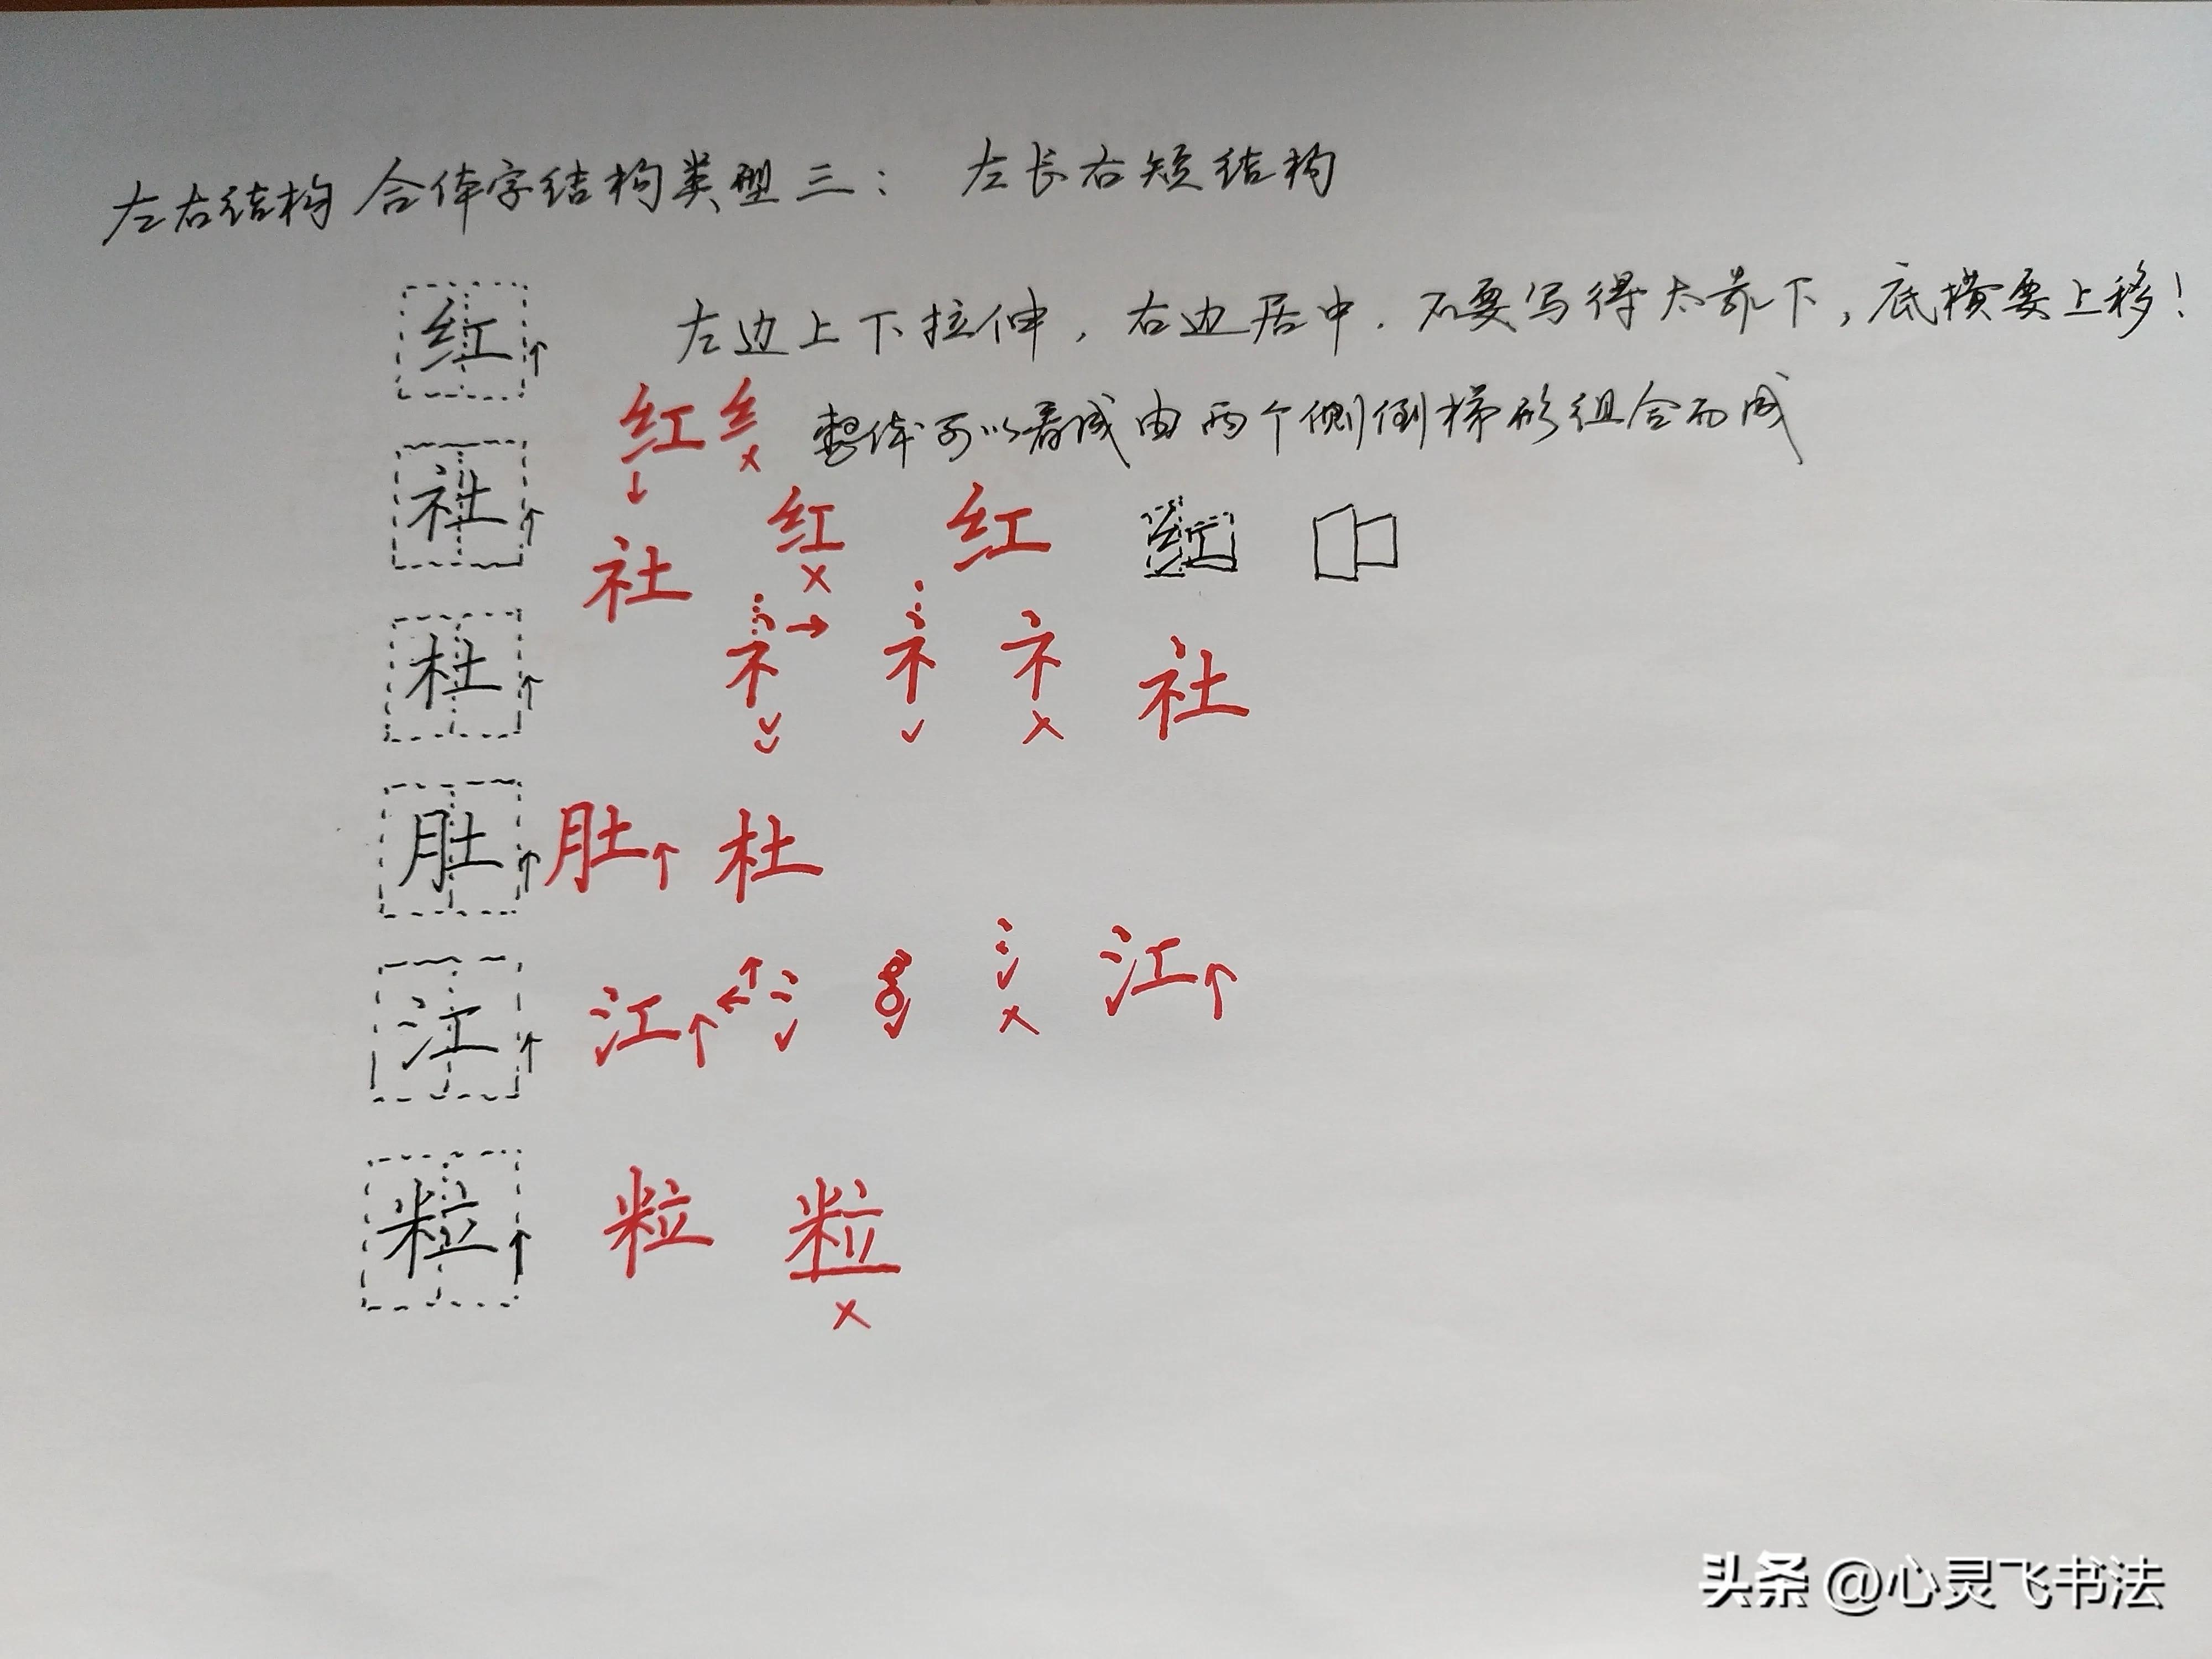 左右结构 合体字结构类型三： 左长右短结构
红 左边上下拉伸，右边居中．不要写得太靠下，底横要上移！
红 纟 整体可以看成由两个侧倒梯形组合而成
社 社 红 红 红
杜 礻 礻 礻 社
肚 肚 杜
江 江 氵 氵 氵 江
粒 粒 粒
头条 @心灵飞书法